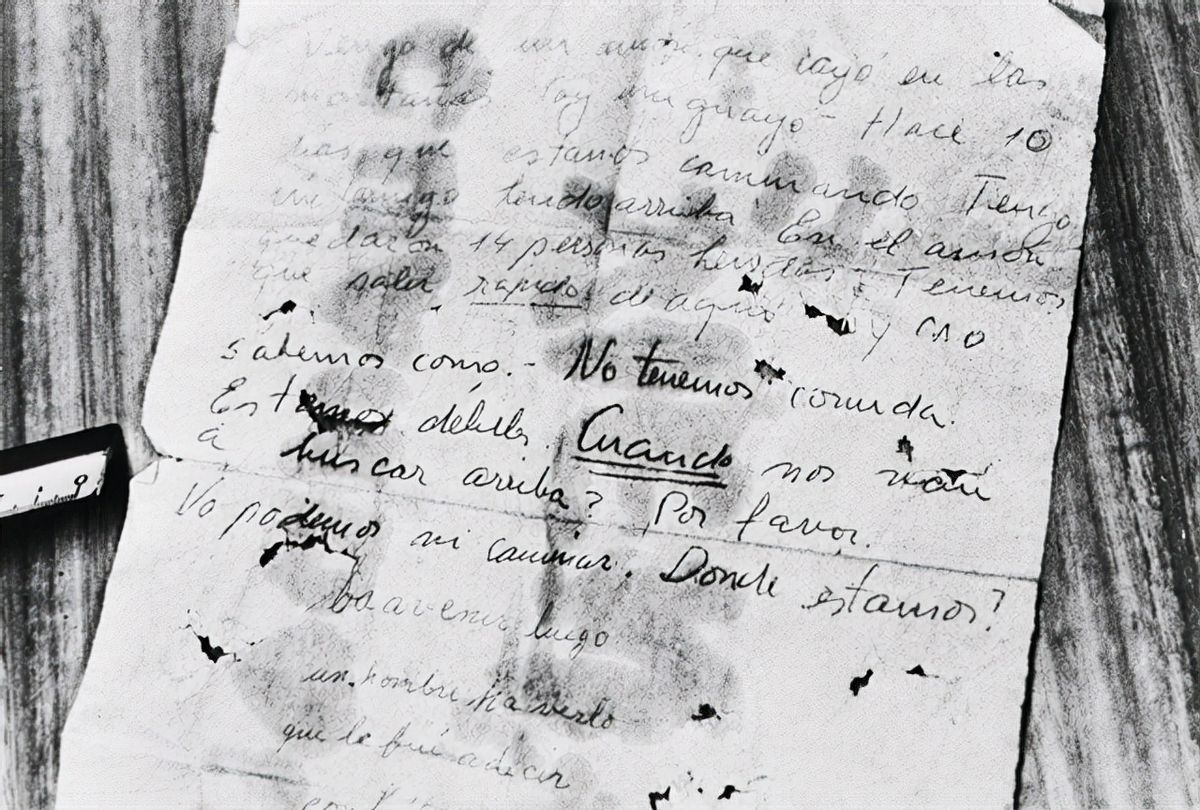 Vengo de un avión que cayó en las
montañas. Soy uruguayo - Hace 10
días que estamos caminando. Tengo
un amigo herido arriba. En el avión
quedaron 14 personas heridas - Tenemos
que salir rápido de aquí y no
sabemos como. - No tenemos comida.
Estamos debiles. Cuando nos van
a buscar arriba? Por favor.
No podemos ni caminar. Donde estamos?
ba a venir luego
un hombre ha verlo
que le fui a decir